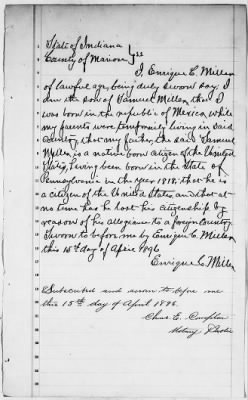 State of Indiana
County of Marion } ss
I Enrique C. Miller
of lawful age, being duly sworn say: I
am the son of Samuel Miller, that I
was born in the republic of Mexico while
my parents were temporarily living in said
Country, that my father, the said Samuel
Miller is a native born citizen of the United
States, having been born in the State of
Pennsylvania in the year 1818, that he is
a citizen of the United States, and that at
no time has he lost his citizenship by
reason of his allegiance to a foreign Country.
Sworn to before me by Enrique C. Miller
this 15th day of April 1896.
Enrique C. Miller
Subscribed and sworn to before me
this 15th day of April 1896.
Chas. E.
Notary Public